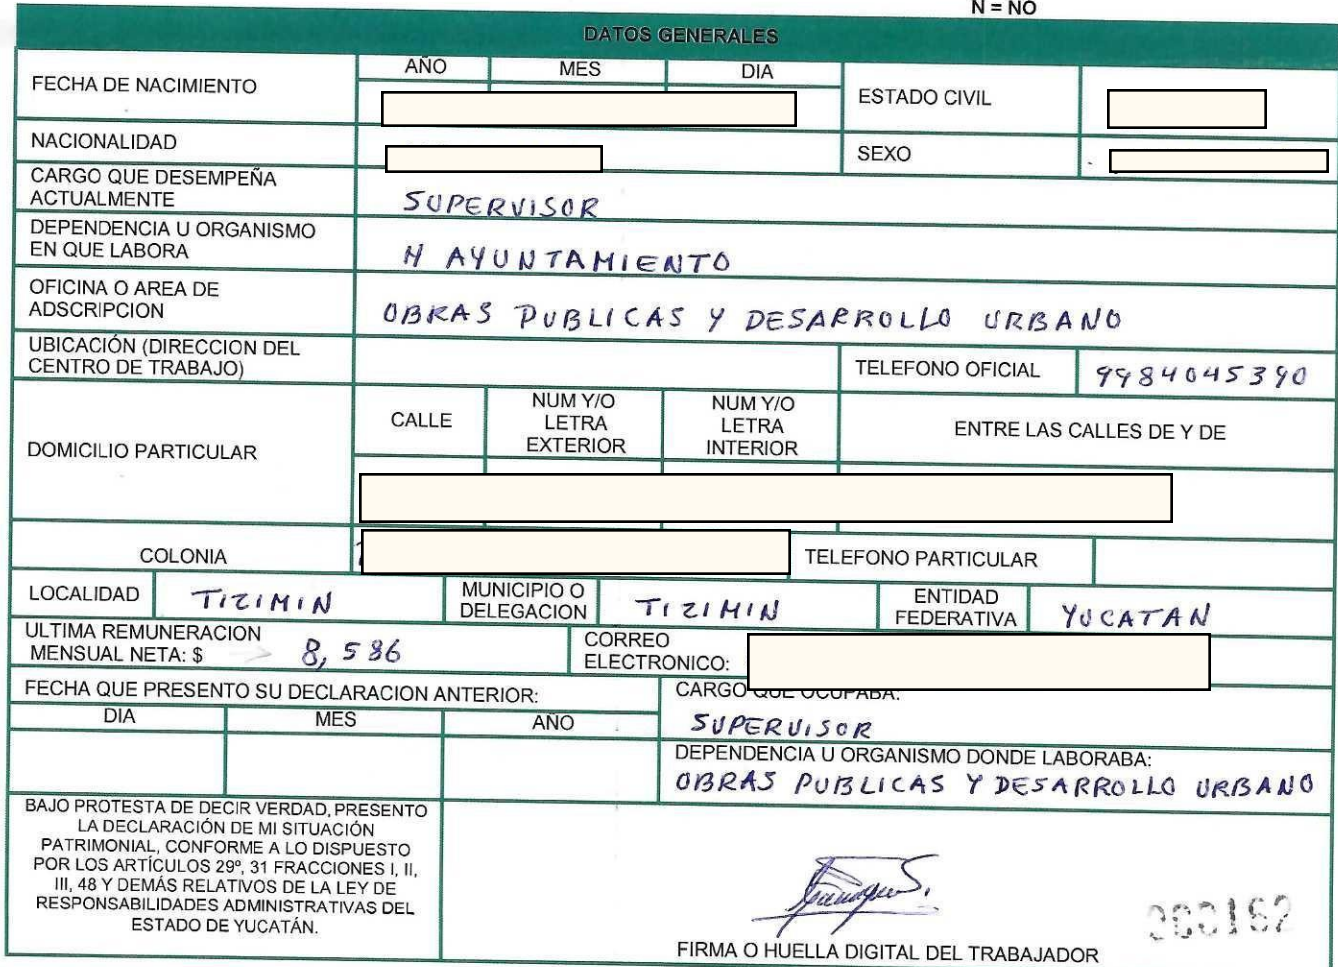 N = NO
DATOS GENERALES
FECHA DE NACIMIENTO
AÑO MES DIA
ESTADO CIVIL
NACIONALIDAD
SEXO
CARGO QUE DESEMPEÑA
ACTUALMENTE
SUPERVISOR
DEPENDENCIA U ORGANISMO
EN QUE LABORA
H AYUNTAMIENTO
OFICINA O AREA DE
ADSCRIPCION
OBRAS PUBLICAS Y DESARROLLO URBANO
UBICACIÓN (DIRECCION DEL
CENTRO DE TRABAJO)
TELEFONO OFICIAL 9984045390
DOMICILIO PARTICULAR
CALLE
NUM Y/O
LETRA
EXTERIOR
NUM Y/O
LETRA
INTERIOR
ENTRE LAS CALLES DE Y DE
COLONIA
TELEFONO PARTICULAR
LOCALIDAD TIZIMIN
MUNICIPIO O
DELEGACION
TIZIMIN
ENTIDAD
FEDERATIVA
YUCATAN
ULTIMA REMUNERACION
MENSUAL NETA: $ 8,586
CORREO
ELECTRONICO:
FECHA QUE PRESENTO SU DECLARACION ANTERIOR:
DIA MES AÑO
CARGO QUE OCUPABA:
SUPERVISOR
DEPENDENCIA U ORGANISMO DONDE LABORABA:
OBRAS PUBLICAS Y DESARROLLO URBANO
BAJO PROTESTA DE DECIR VERDAD, PRESENTO
LA DECLARACIÓN DE MI SITUACIÓN
PATRIMONIAL, CONFORME A LO DISPUESTO
POR LOS ARTÍCULOS 29º, 31 FRACCIONES I, II,
III, 48 Y DEMÁS RELATIVOS DE LA LEY DE
RESPONSABILIDADES ADMINISTRATIVAS DEL
ESTADO DE YUCATÁN.
000162
FIRMA O HUELLA DIGITAL DEL TRABAJADOR